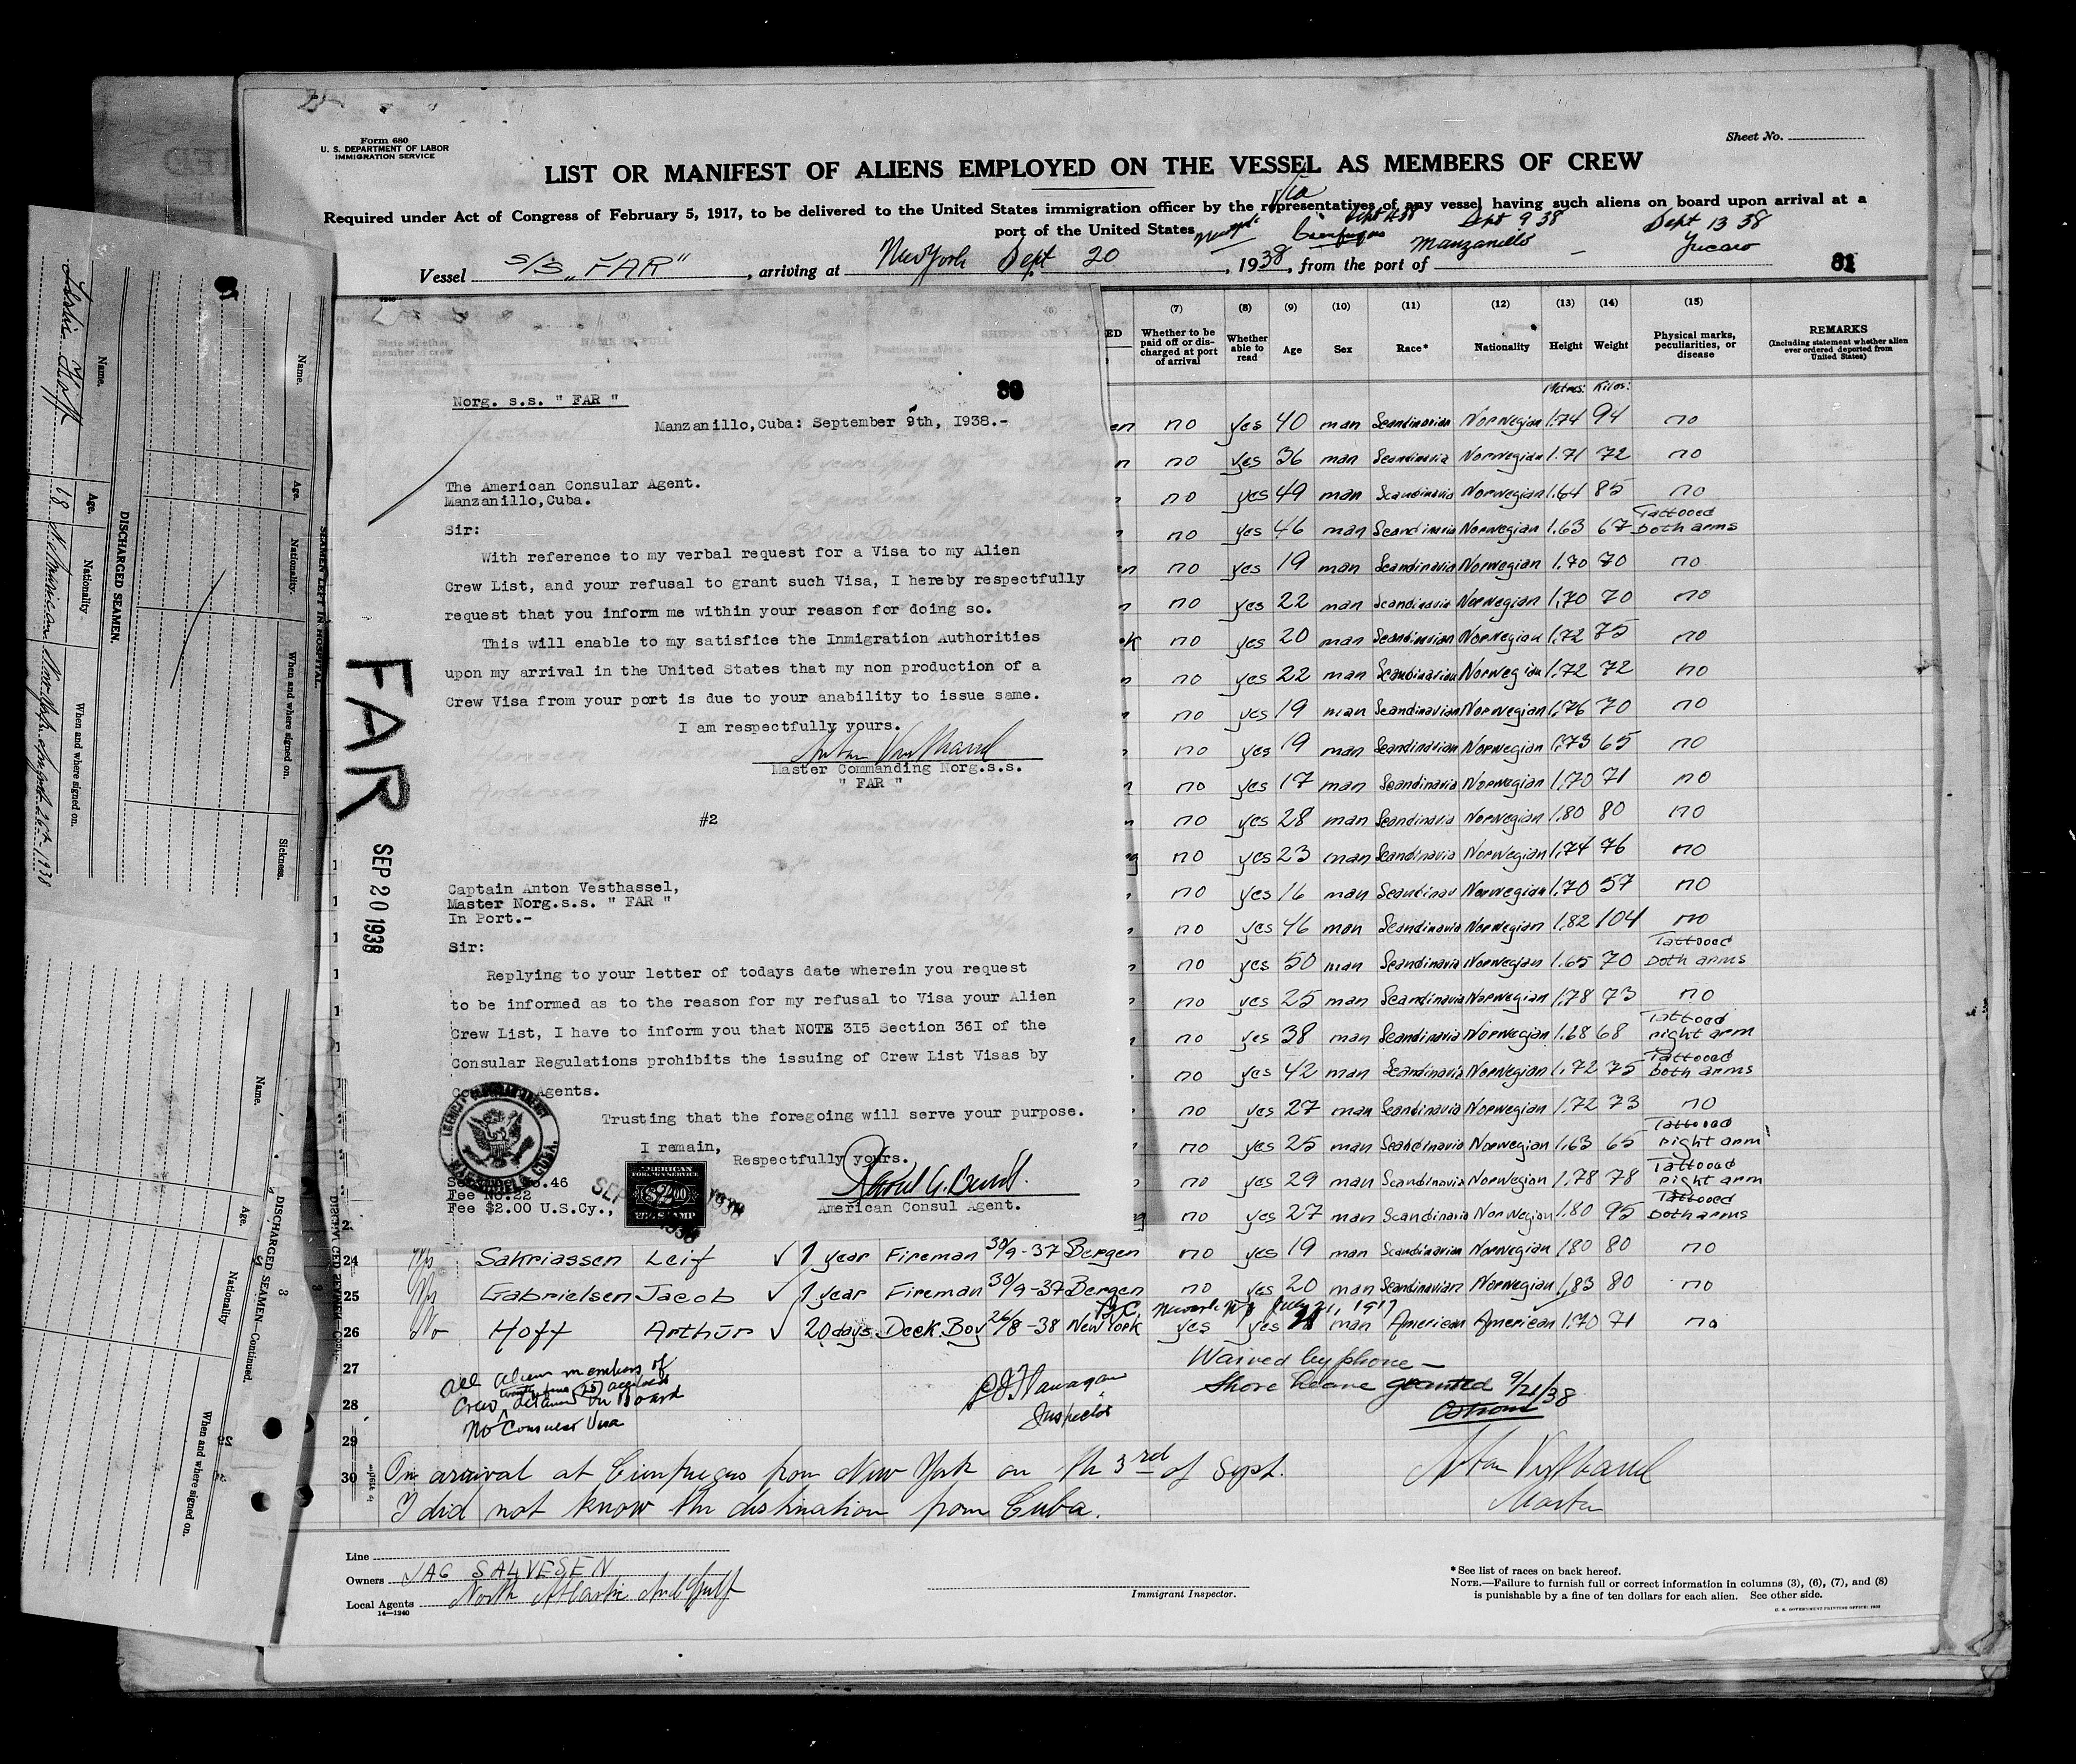 Form 680
U. S. DEPARTMENT OF LABOR
IMMIGRATION SERVICE
Sheet No.
LIST OR MANIFEST OF ALIENS EMPLOYED ON THE VESSEL AS MEMBERS OF CREW
Via
Required under Act of Congress of February 5, 1917, to be delivered to the United States immigration officer by the representatives of any vessel having such aliens on board upon arrival at a
port of the United States
Sept 9 38 Sept 13 38
Cienfuegos Manzanillo - Jucaro
Vessel S/S "FAR", arriving at New York Sept 20, 1938, from the port of
ED (7) Whether to be paid off or discharged at port of arrival (8) Whether able to read (9) Age (10) Sex (11) Race* (12) Nationality (13) Height (14) Weight (15) Physical marks, peculiarities, or disease REMARKS (Including statement whether alien ever ordered deported from United States)
Metres: Kilos:
no yes 40 man Scandinavian Norwegian 1.74 94 no
no yes 36 man Scandinavia Norwegian 1.71 72 no
no yes 49 man Scandinavia Norwegian 1.64 85 no
no yes 46 man Scandinavia Norwegian 1.63 67 Tattooed both arms
no yes 19 man Scandinavia Norwegian 1.70 70 no
no yes 22 man Scandinavia Norwegian 1,70 70 no
no yes 20 man Scandinavian Norwegian 1.72 75 no
no yes 22 man Scandinavian Norwegian 1.72 72 no
no yes 19 man Scandinavian Norwegian 1,76 70 no
no yes 19 man Scandinavian Norwegian 1,73 65 no
no yes 17 man Scandinavia Norwegian 1,70 71 no
no yes 28 man Scandinavia Norwegian 1,80 80 no
no yes 23 man Scandinavia Norwegian 1,74 76 no
no yes 16 man Scandinav Norwegian 1.70 57 no
no yes 46 man Scandinavia Norwegian 1,82 104 no
no yes 50 man Scandinavia Norwegian 1.65 70 Tattooed both arms
no yes 25 man Scandinavia Norwegian 1,78 73 no
no yes 38 man Scandinavia Norwegian 1.68 68 Tattooed right arm
no yes 42 man Scandinavia Norwegian 1,72 75 Tattooed both arms
no yes 27 man Scandinavia Norwegian 1,72 73 no
no yes 25 man Scandinavia Norwegian 1,63 65 Tattooed right arm
no yes 29 man Scandinavia Norwegian 1,78 78 Tattooed right arm
no yes 27 man Scandinavia Norwegian 1.80 95 Tattooed both arms
24 Sakriassen Leif ✓ 1 year Fireman 30/9-37 Bergen no yes 19 man Scandinavian Norwegian 180 80 no
25 Gabrielsen Jacob ✓ 1 year Fireman 30/9-37 Bergen no yes 20 man Scandinavian Norwegian 1,83 80 no
B.C. Newark NJ July 21, 1917
26 Hoff Arthur ✓ 20 days Deck Boy 26/8-38 New York yes yes 21 man American American 1,70 71 no
27
28
29
30
All alien members of
Crew twenty five (25) detained on board
No Consular Visa
Inspector
Waived by phone —
Shore leave granted 9/21/38
On arrival at Cienfuegos from New York on th 3rd of Sept.
I did not know the distination from Cuba.
Master
Line
Owners JAC SALVESEN
Local Agents North Atlantic And Gulf
14—1240
Immigrant Inspector.
*See list of races on back hereof.
NOTE.—Failure to furnish full or correct information in columns (3), (6), (7), and (8)
is punishable by a fine of ten dollars for each alien. See other side.
U. S. GOVERNMENT PRINTING OFFICE
Norg. s.s. " FAR "
Manzanillo,Cuba: September 9th, 1938.-
The American Consular Agent.
Manzanillo,Cuba.
Sir:
With reference to my verbal request for a Visa to my Alien
Crew List, and your refusal to grant such Visa, I hereby respectfully
request that you inform me within your reason for doing so.
This will enable to my satisfice the Inmigration Authorities
upon my arrival in the United States that my non production of a
Crew Visa from your port is due to your anability to issue same.
I am respectfully yours.
Master Commanding Norg.s.s.
" FAR "
#2
Captain Anton Vesthassel,
Master Norg.s.s. " FAR "
In Port.-
Sir:
Replying to your letter of todays date wherein you request
to be informed as to the reason for my refusal to Visa your Alien
Crew List, I have to inform you that NOTE 3I5 Section 36I of the
Consular Regulations prohibits the issuing of Crew List Visas by
Agents.
Trusting that the foregoing will serve your purpose.
I remain,
Respectfully yours.
American Consul Agent.
MANZANILLO, CUBA.
.46
Fee No.22
Fee $2.00 U.S.Cy.,
AMERICAN
FOREIGN SERVICE
$2.00
FEE STAMP
SEP 1938
FAR
SEP 20 1938
SEAMEN LEFT IN HOSPITAL
Name. Age. Nationality. When and where signed on. Sickness.
DISCHARGED SEAMEN.
Name. Age. Nationality When and where signed on.
Leslie Hoff 18 N. American New York August 26th 1938
DISCHARGED SEAMEN—Continued.
Name. Age. Nationality When and where signed on.